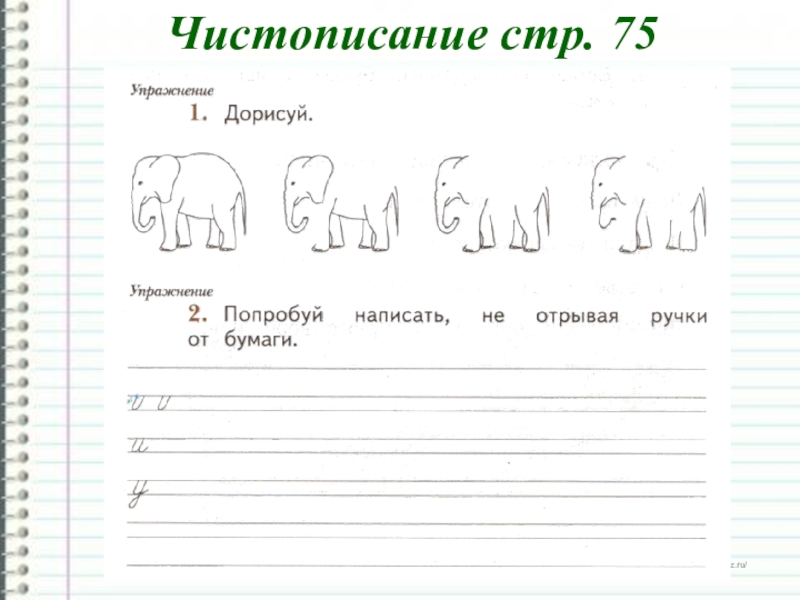 Чистописание стр. 75
Упражнение
1. Дорисуй.
Упражнение
2. Попробуй написать, не отрывая ручки
от бумаги.
и
у
z.ru/